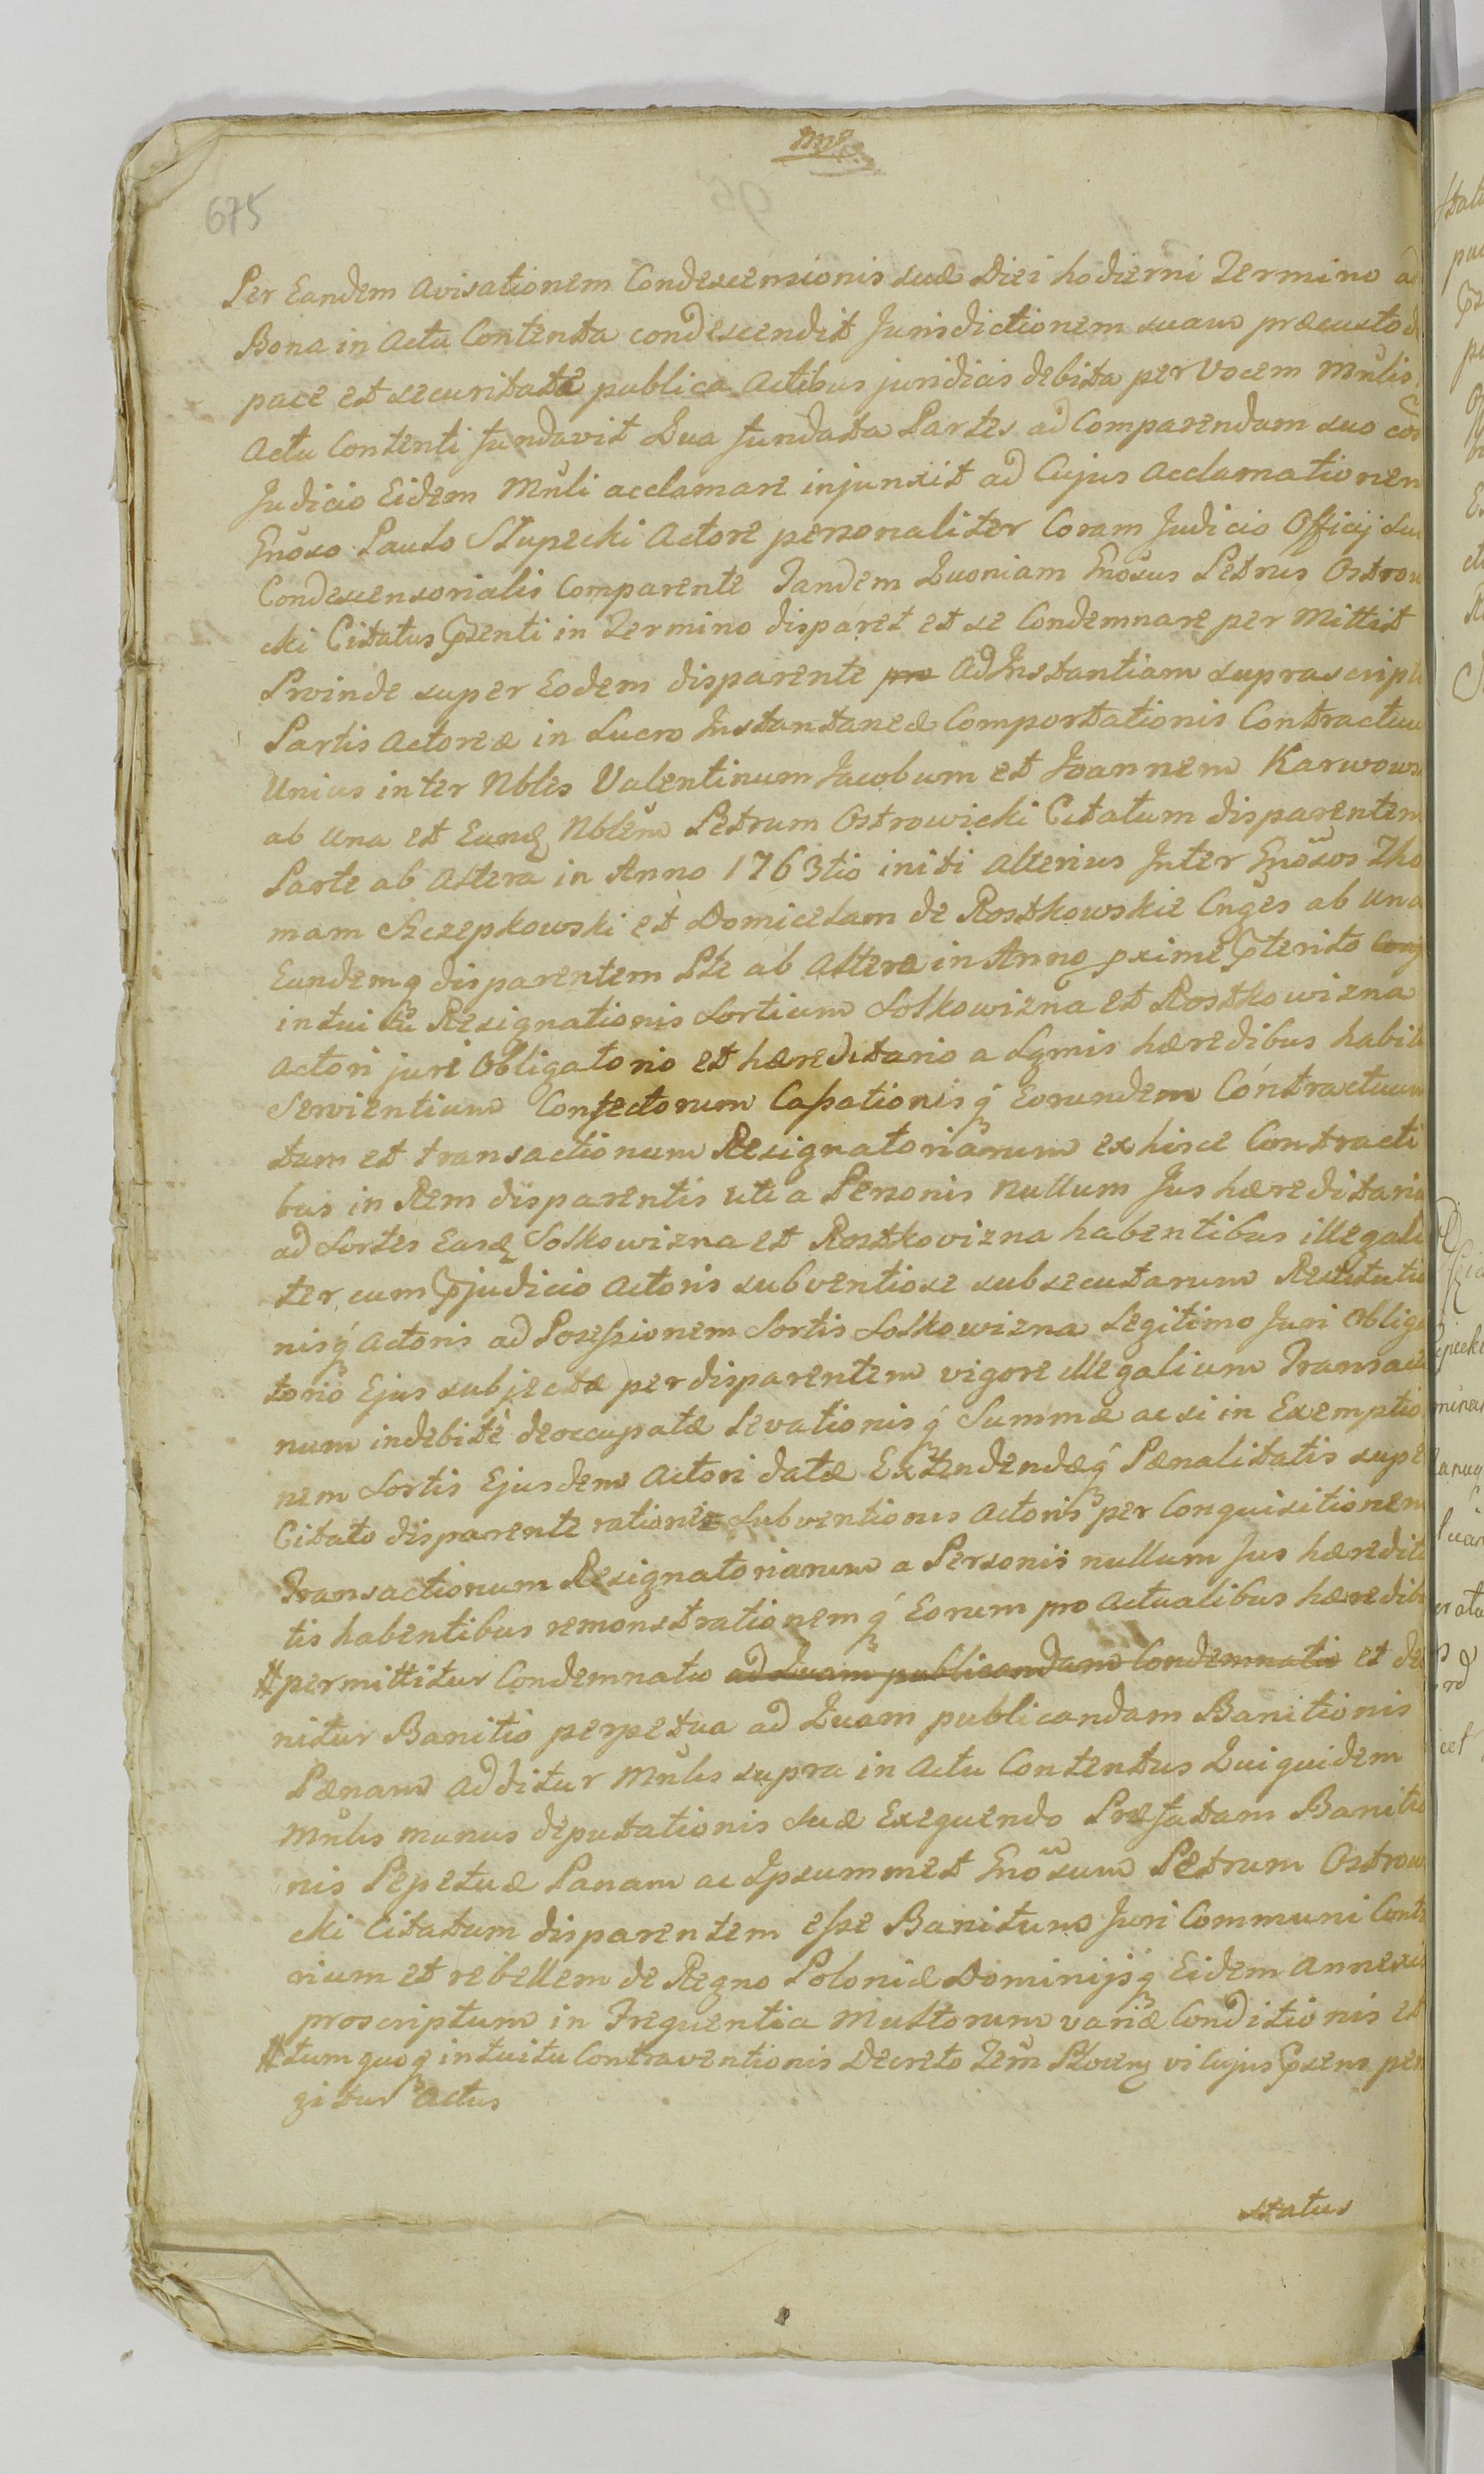 675
Per Eandem Avisationem Condescensionis suæ Diei hodierni Termino ad
Bona in Actu Contenta condescendit Jurisdictionem suam præcustod
pace et securitate publica Actibus juridicis debita per Vocem Mnlis
Actu Contenti fundavit Qua fundata Partes ad Comparendam suo cor
Judicio Eidem Mnli acclamare injunxit ad Cujus Acclamationem
Gnoso Paulo Słupecki Actore personaliter Coram Judicio Officij Sui
Condescensorialis Comparente Tandem Quoniam Gnosus Petrus Ostrow
cki Citatus pnti in Termino disparet et se Condemnare per Mittit
Proinde super Eodem disparente pro Ad Instantiam suprascript
Partis Actoreæ in Lucro Instantaneæ Comportationis Contractuu
Unius inter Nbles Valentinum Jacobum et Joannem Karwows
ab una et Eundę Nblem Petrum Ostrowicki Citatum disparentem
Parte ab Altera in Anno 1763tio initi Alterius Inter Gnosos Tho
mam Szczepkowski et Domicelam de Rostkowskie Cnges ab una
Eundemq disparentem Pte ab Altera in Anno pxime pterito
intuitu Resignationis Sortium Solkowizna et Rostkowizna
Actori juri Obligatorio et hæreditario a Lgmis hæredibus habit
Servientium Confectorum Cassationisq Eorundem Contractuum
tum et transactionum Resignatoriarum ex hisce Contracti
bus in Rem disparentis uti a Personis nullum Jus hæreditariu
ad Sortes Easdę Solkowizna et Rostkovizna habentibus illegali
ter cum pjudicio Actoris subventiose subsecutarum Restitutio
nisq Actoris ad Possessionem Sortis Solkowizna Legitimo Juri Obliga
torio Ejus subjectæ per disparentem vigore illegalium Transactio
num indebitè deoccupatæ Levationisq Summæ ac si in Exemptio
nem Sortis Ejusdem Actori datæ Extendendæq Pænalitatis supe
Citato disparente rationie Subventionis Actoris per Conquisitionem
Transactionum Resignatoriarum a Personis nullum Jus hæredita
tis habentibus remonstrationemq Eorum pro Actualibus hæredib
# permittitur Condemnatu ad Quam publicandam Condemnatio et de
nitur Banitio perpetua ad Quam publicandam Banitionis
Pænam additur Mnlis supra in Actu Contentus Qui quidem
Mnlis munus deputationis Suæ Exequendo Præfatam Banitio
nis Pepetuæ Pænam ac Ipsummet Gnosum Petrum Ostrow
cki Citatum disparentem esse Banitum Juri Communi Contr
rium et rebellem de Regno Poloniæ Dominijsq Eidem Annexis
proscriptum in Frequentia Multorum variæ Conditionis et
# tum quoq intuitu Contraventionis Decreto Tem vi Cujus psens per
gitur Actus
status